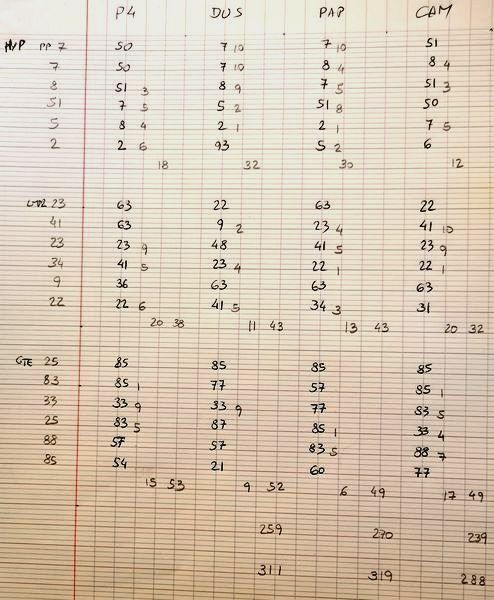 P4 DUS PAP CAM
MVP PP 7 50 7 10 7 10 51
7 50 7 10 8 4 8 4
8 51 3 8 9 7 5 51 3
51 7 5 5 2 51 8 50
5 8 4 2 1 2 1 7 5
2 2 6 93 5 2 6
18 32 30 12
23 63 22 63 22
41 63 9 2 23 4 41 10
23 23 9 48 41 5 23 9
34 41 5 23 4 22 1 22 1
9 36 63 63 63
22 22 6 41 5 34 3 31
20 38 11 43 13 43 20 32
GTE 25 85 85 85 85
83 85 1 77 57 85 1
33 33 9 33 9 77 83 5
25 83 5 87 85 1 33 4
88 57 57 83 5 88 7
85 54 21 60 77
15 53 9 52 6 49 17 49
259 270 239
311 319 288